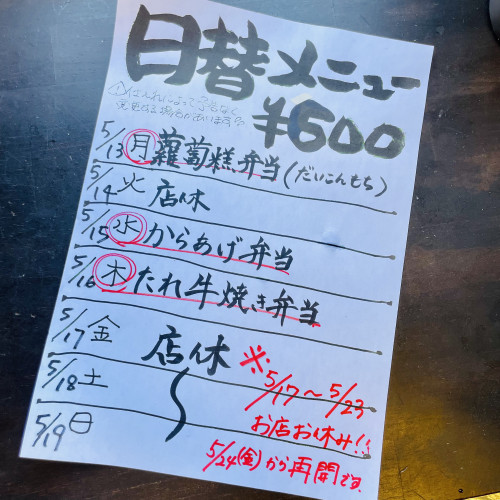 日替メニュー
¥600
①仕入れによって予告なく
変更する場合があります
5/13 月 蘿蔔糕弁当(だいこんもち)
5/14 火 店休
5/15 水 からあげ弁当
5/16 木 たれ牛焼き弁当
5/17 金 店休
5/18 土
5/19 日
※5/17〜5/23
お店お休み!!
5/24(金)から再開です。